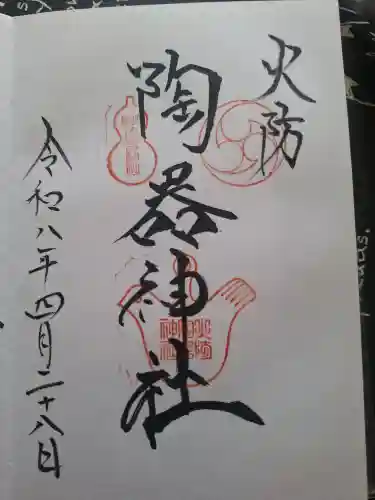 火防
陶器神社
令和八年四月二十八日